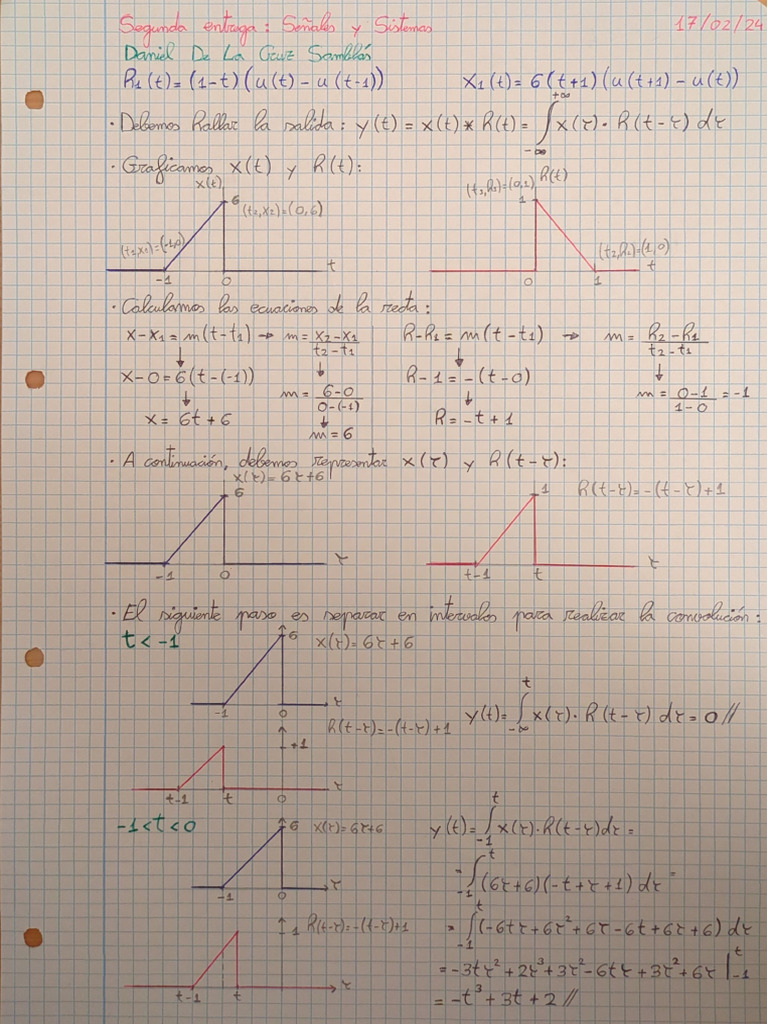 Segunda entrega: Señales y Sistemas 17/02/24
Daniel De La Cruz Samblás
h₁(t)=(1-t)(u(t)-u(t-1)) x₁(t)=6(t+1)(u(t+1)-u(t))
· Debemos hallar la salida: y(t)=x(t)*h(t)=∫_{-∞}^{+∞} x(τ)·h(t-τ) dτ
· Graficamos x(t) y h(t):
x(t) (t₁,h₁)=(0,1) h(t)
6 (t₂,x₂)=(0,6) 1
(t₁,x₁)=(-1,0) (t₂,h₂)=(1,0)
-1 0 t 0 1 t
· Calculamos las ecuaciones de la recta:
x-x₁=m(t-t₁) → m=(x₂-x₁)/(t₂-t₁) h-h₁=m(t-t₁) → m=(h₂-h₁)/(t₂-t₁)
x-0=6(t-(-1)) m=(6-0)/(0-(-1)) h-1=-(t-0) m=(0-1)/(1-0)=-1
x=6t+6 m=6 h=-t+1
· A continuación, debemos representar x(τ) y h(t-τ):
x(τ)=6τ+6
6 1 h(t-τ)=-(t-τ)+1
-1 0 τ t-1 t τ
· El siguiente paso es separar en intervalos para realizar la convolución:
t<-1 6 x(τ)=6τ+6
-1 0 τ y(t)=∫_{-∞}^{t} x(τ)·h(t-τ) dτ=0//
h(t-τ)=-(t-τ)+1
1
t-1 t 0 τ
-1<t<0 6 x(τ)=6τ+6 y(t)=∫_{-1}^{t} x(τ)·h(t-τ)dτ=
-1 0 τ =∫_{-1}^{t} (6τ+6)(-t+τ+1) dτ=
1 h(t-τ)=-(t-τ)+1 =∫_{-1}^{t} (-6tτ+6τ²+6τ-6t+6τ+6) dτ
=-3tτ²+2τ³+3τ²-6tτ+3τ²+6τ|_{-1}^{t}
t-1 t τ =-t³+3t+2//